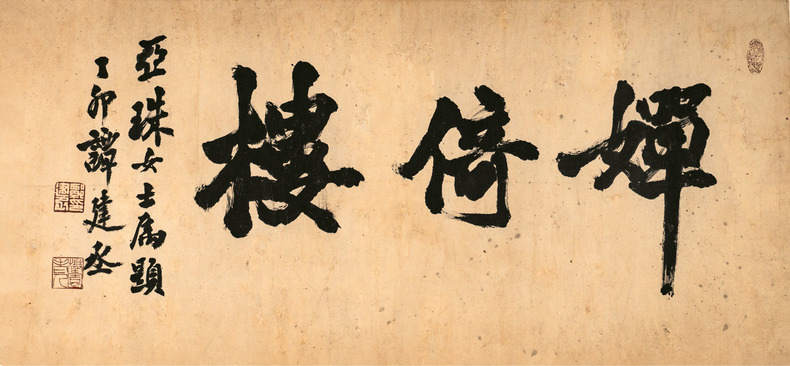 嬋倚樓
亞珠女士屬題
丁卯譚建丞